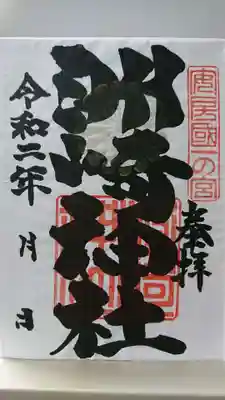 安房國一の宮
奉拝
洲崎神社
令和二年 月 日